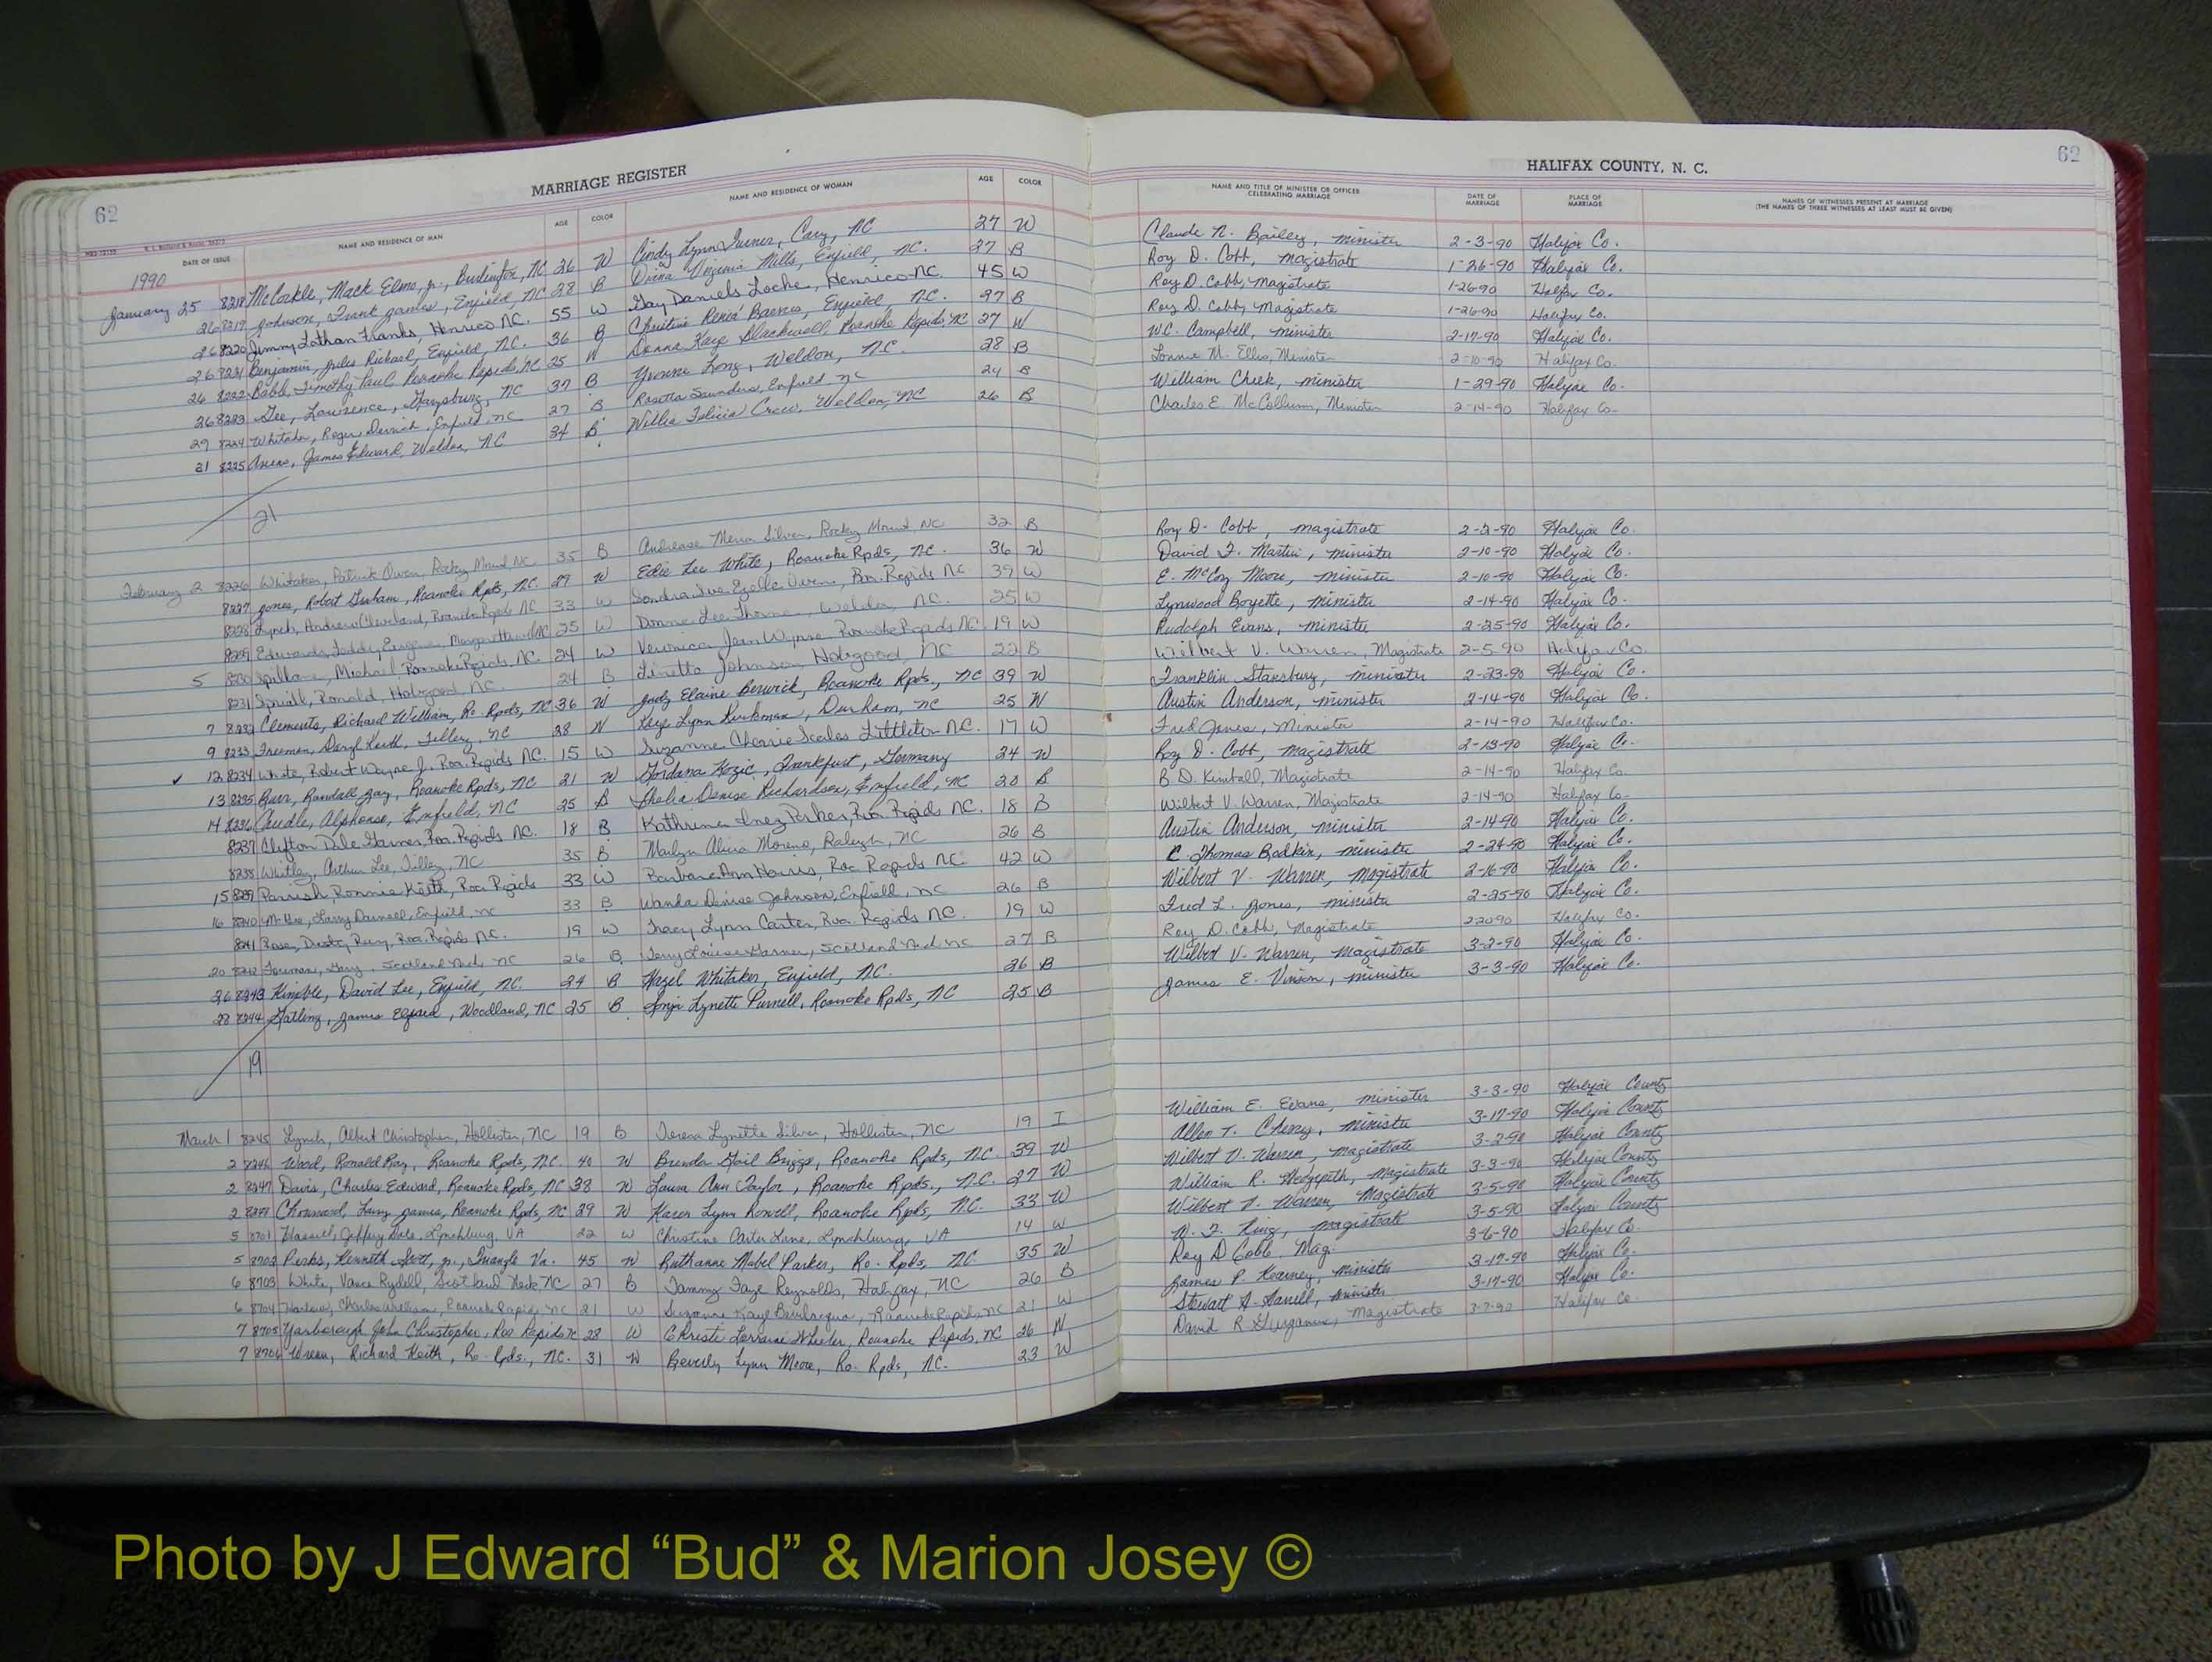 62
MARRIAGE REGISTER
HALIFAX COUNTY, N. C.
62
DATE OF ISSUE NAME AND RESIDENCE OF MAN AGE COLOR NAME AND RESIDENCE OF WOMAN AGE COLOR NAME AND TITLE OF MINISTER OR OFFICER CELEBRATING MARRIAGE DATE OF MARRIAGE PLACE OF MARRIAGE NAMES OF WITNESSES PRESENT AT MARRIAGE (THE NAMES OF THREE WITNESSES AT LEAST MUST BE GIVEN)
1990
January 25 8218 McCorkle, Mack Elmo, jr., Burlington, NC 26 W Cindy Lynn Turner, Cary, NC 27 W Claude N. Bailey, minister 2-3-90 Halifax Co.
26 8219 Johnson, Frank James, Enfield, NC 28 B Virginia Mills, Enfield, NC. 27 B Roy D. Cobb, magistrate 1-26-90 Halifax Co.
26 8220 Jimmy Lothan Franks, Henrico NC. 55 W Gay Daniels Locke, Henrico NC. 45 W Roy D. Cobb, Magistrate 1-26-90 Halifax Co.
26 8221 Benjamin, Jules Richard, Enfield, N.C. 36 B Christine Barnes, Enfield, N.C. 27 B Roy D. Cobb, Magistrate 1-26-90 Halifax Co.
26 8222 Babb, Timothy Paul, Roanoke Rapids, NC 25 W Donna Kaye Blackwell, Roanoke Rapids, NC 27 W W.C. Campbell, minister 2-17-90 Halifax Co.
26 8223 Lee, Lawrence, Garysburg, NC 37 B Yvonne Long, Weldon, N.C. 28 B Lonnie M. Ellis, Minister 2-10-90 Halifax Co.
29 8224 Whitaker, Roger Derrick, Enfield, NC 27 B Rosetta Saunders, Enfield, NC 24 B William Cheek, minister 1-29-90 Halifax Co.
31 8225 James Edward, Weldon, NC 34 B Willie Felicia Crew, Weldon, NC 26 B Charles E. McCollum, Minister 2-14-90 Halifax Co.
21
February 2 8226 Whitaker, Patrick Owen, Rocky Mount NC 35 B Andrease Silver, Rocky Mount, NC 32 B Roy D. Cobb, magistrate 2-2-90 Halifax Co.
8227 Jones, Robert Graham, Roanoke Rpds, N.C. 29 W Edie Lee White, Roanoke Rpds, N.C. 36 W David F. Martin, minister 2-10-90 Halifax Co.
8228 Lynch, Andrew Cleveland, Roanoke Rapids NC 33 W Sondra Sue Ezelle Owens, Roa. Rapids NC 39 W E. McCoy Moore, minister 2-10-90 Halifax Co.
8229 Edwards, Teddy Eugene, Margarettsville NC 25 W Donna Lee Thorne, Weldon, N.C. 25 W Lynwood Boyette, minister 2-14-90 Halifax Co.
8230 Spillane, Michael, Roanoke Rapids, NC. 24 W Veronica Jean Wynne, Roanoke Rapids NC. 19 W Rudolph Evans, minister 2-25-90 Halifax Co.
5 8231 Spruill, Ronald, Hobgood, NC. 24 B Linetta Johnson, Hobgood, NC 22 B Wilbert V. Warren, Magistrate 2-5-90 Halifax Co.
7 8232 Clements, Richard William, Ro. Rpds, NC 36 W Judy Elaine Berwick, Roanoke Rpds., NC 39 W Franklin Stansbury, minister 2-23-90 Halifax Co.
9 8233 Freeman, Daryl Keith, Tillery, NC 28 W Kaye Lynn Kirkman, Durham, NC 25 W Austin Anderson, minister 2-14-90 Halifax Co.
✓ 12 8234 White, Robert Wayne Jr. Roa. Rapids NC. 15 W Suzanne Cherrie Scales Littleton NC. 17 W Fred Jones, Minister 2-14-90 Halifax Co.
13 8235 Burr, Randall Jay, Roanoke Rpds, NC 21 W Gordana Kozic, Frankfurt, Germany 24 W Roy D. Cobb, magistrate 2-13-90 Halifax Co.
14 8236 Caudle, Alphonso, Enfield, NC 25 B Shelia Denise Richardson, Enfield, NC 20 B B. D. Kimball, Magistrate 2-14-90 Halifax Co.
8237 Clifton Dale Garner, Roa. Rapids NC. 18 B Kathrena Inez Parker, Roa. Rapids NC. 18 B Wilbert V. Warren, Magistrate 2-14-90 Halifax Co.
8238 Whitley, Arthur Lee, Tillery, NC 35 B Marlyn Alicia Moreno, Raleigh, NC 26 B Austin Anderson, minister 2-14-90 Halifax Co.
15 8239 Parrish, Ronnie Keith, Roa. Rapids 33 W Barbara Ann Harris, Roa. Rapids NC 42 W C. Thomas Bodkin, minister 2-24-90 Halifax Co.
16 8240 Larry Darnell, Enfield, NC 33 B Wanda Denise Johnson, Enfield, NC 26 B Wilbert V. Warren, magistrate 2-16-90 Halifax Co.
8241 Rose, Dusty Ray, Roa. Rapids NC. 19 W Tracy Lynn Carter, Roa. Rapids NC. 19 W Fred L. Jones, minister 2-25-90 Halifax Co.
20 8242 Foreman, Gary, Scotland Neck, NC 26 B Terry Louise Garner, Scotland Neck NC 27 B Roy D. Cobb, Magistrate 2-20-90 Halifax Co.
26 8243 Kimble, David Lee, Enfield, NC. 24 B Hazel Whitaker, Enfield, NC. 26 B Wilbert V. Warren, magistrate 3-2-90 Halifax Co.
28 8244 Gatling, James Edward, Woodland, NC 25 B Sonji Lynette Purnell, Roanoke Rpds, NC 25 B James E. Vinson, minister 3-3-90 Halifax Co.
19
March 1 8245 Lynch, Albert Christopher, Hollister, NC 19 B Teresa Lynette Silver, Hollister, NC 19 I William E. Evans, minister 3-3-90 Halifax County
2 8246 Ward, Ronald Ray, Roanoke Rpds, N.C. 40 W Brenda Gail Briggs, Roanoke Rpds, N.C. 39 W Allen T. Cherry, minister 3-17-90 Halifax County
2 8247 Davis, Charles Edward, Roanoke Rpds, NC 38 W Laura Ann Taylor, Roanoke Rpds., N.C. 27 W Wilbert V. Warren, magistrate 3-2-90 Halifax County
2 Larry James, Roanoke Rpds, NC 29 W Karen Lynn Powell, Roanoke Rpds, N.C. 33 W William R. Hedgepeth, Magistrate 3-3-90 Halifax County
5 8701 Hassell, Jeffery Dale, Lynchburg, VA 22 W Christine Carter Lane, Lynchburg, VA 14 W Wilbert V. Warren, Magistrate 3-5-90 Halifax County
5 8702 Perks, Kenneth Scott, jr., Triangle Va. 45 W Ruthanne Mabel Parker, Ro. Rpds, NC. 35 W W. F. King, magistrate 3-5-90 Halifax County
6 8703 White, Vance Rydell, Scotland Neck NC 27 B Tammy Faye Reynolds, Halifax, NC 26 B Roy D Cobb Mag. 3-6-90 Halifax Co.
6 8704 Charles William, Roanoke Rapids, NC 21 W Suzanne Kaye Roanoke Rapids, NC 21 W James P. Kearney, minister 3-17-90 Halifax Co.
7 8705 Yarborough, John Christopher, Roa Rapids NC 28 W Christi Lorraine Wheeler, Roanoke Rapids, NC 26 W Stewart A. minister 3-17-90 Halifax Co.
7 8706 Richard Keith, Ro. Rpds., NC. 31 W Beverly Lynn Moore, Ro. Rpds, NC. 23 W David R Gurganus, Magistrate 3-7-90 Halifax Co
Photo by J Edward “Bud” & Marion Josey ©